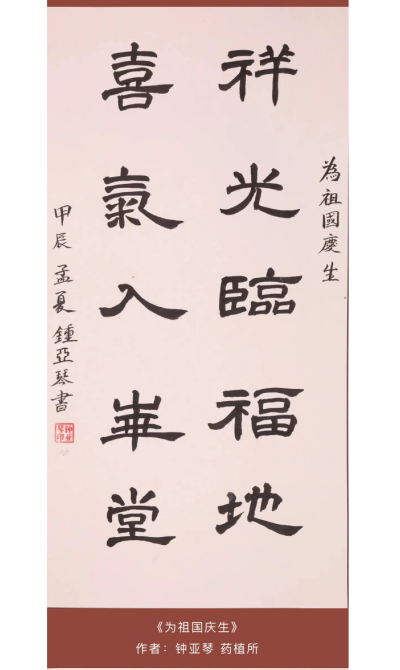 為祖國慶生
祥光臨福地
喜氣入華堂
甲辰孟夏鍾亞琴書
《为祖国庆生》
作者：钟亚琴 药植所